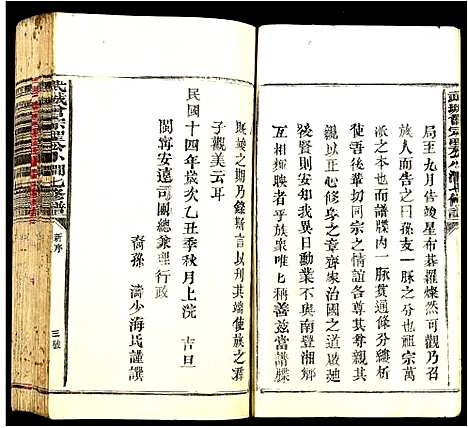 局至九月告竣星布碁羅燦然可觀乃召
族人而告之曰孫支一一溯其祖也祖宗萬
代本也而譜牒內一脈貫通條分縷析
使吾後萃同宗之情誼各具尊祖敬宗
親親之心非以少之章齊家治國之道啟廸
後賢則安知我異日勳業不與南豐湘鄉
互相輝映者乎族衆唯七稱善茲當譜牒
既竣之期乃錄斯言以引其端使族之君
子觀美云耳
民國十四年歲次乙丑季秋月上浣 吉旦
閩寧安遠司團總兼理行政
裔孫 濤少海氏謹譔
武城曾宗聖公小湖七修譜
新序
三號